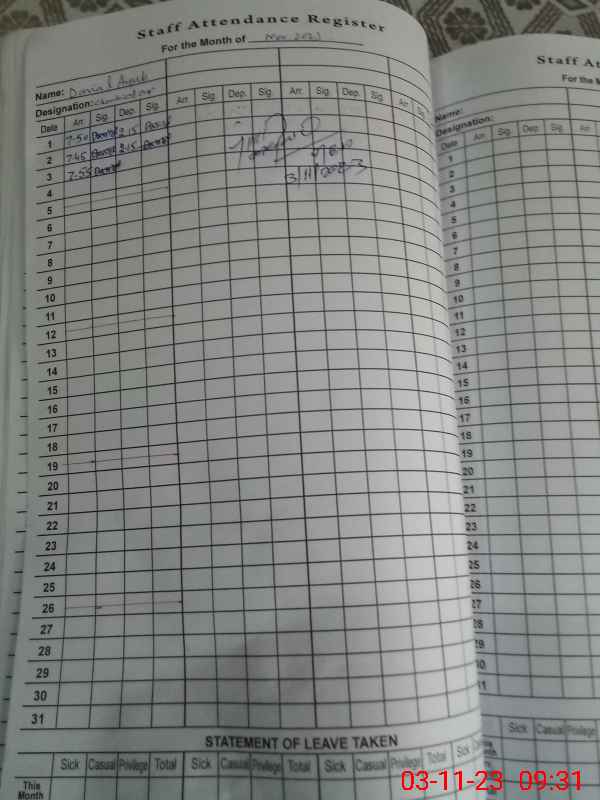 Staff Attendance Register
For the Month of Nov 2023
Name:
Designation:
Date Arr. Sig. Dep. Sig. Arr. Sig. Dep. Sig. Arr. Sig. Dep. Sig. Arr. Sig.
1 7-50 2.15
2 7.45 2.15
3 7-55
4
5
6
7
8
9
10
11
12
13
14
15
16
17
18
19
20
21
22
23
24
25
26
27
28
29
30
31
3/11/2023
STATEMENT OF LEAVE TAKEN
Sick Casual Privilege Total Sick Casual Privilege Total Sick Casual Privilege Total Sick
This Month
Staff At
For the M
Name:
Designation:
Date Arr. Sig. Dep. Sig. Arr.
1
2
3
4
5
6
7
8
9
10
11
12
13
14
15
16
17
18
19
20
21
22
23
24
25
26
27
28
29
30
31
Sick Casual Privilege
03-11-23 09:31